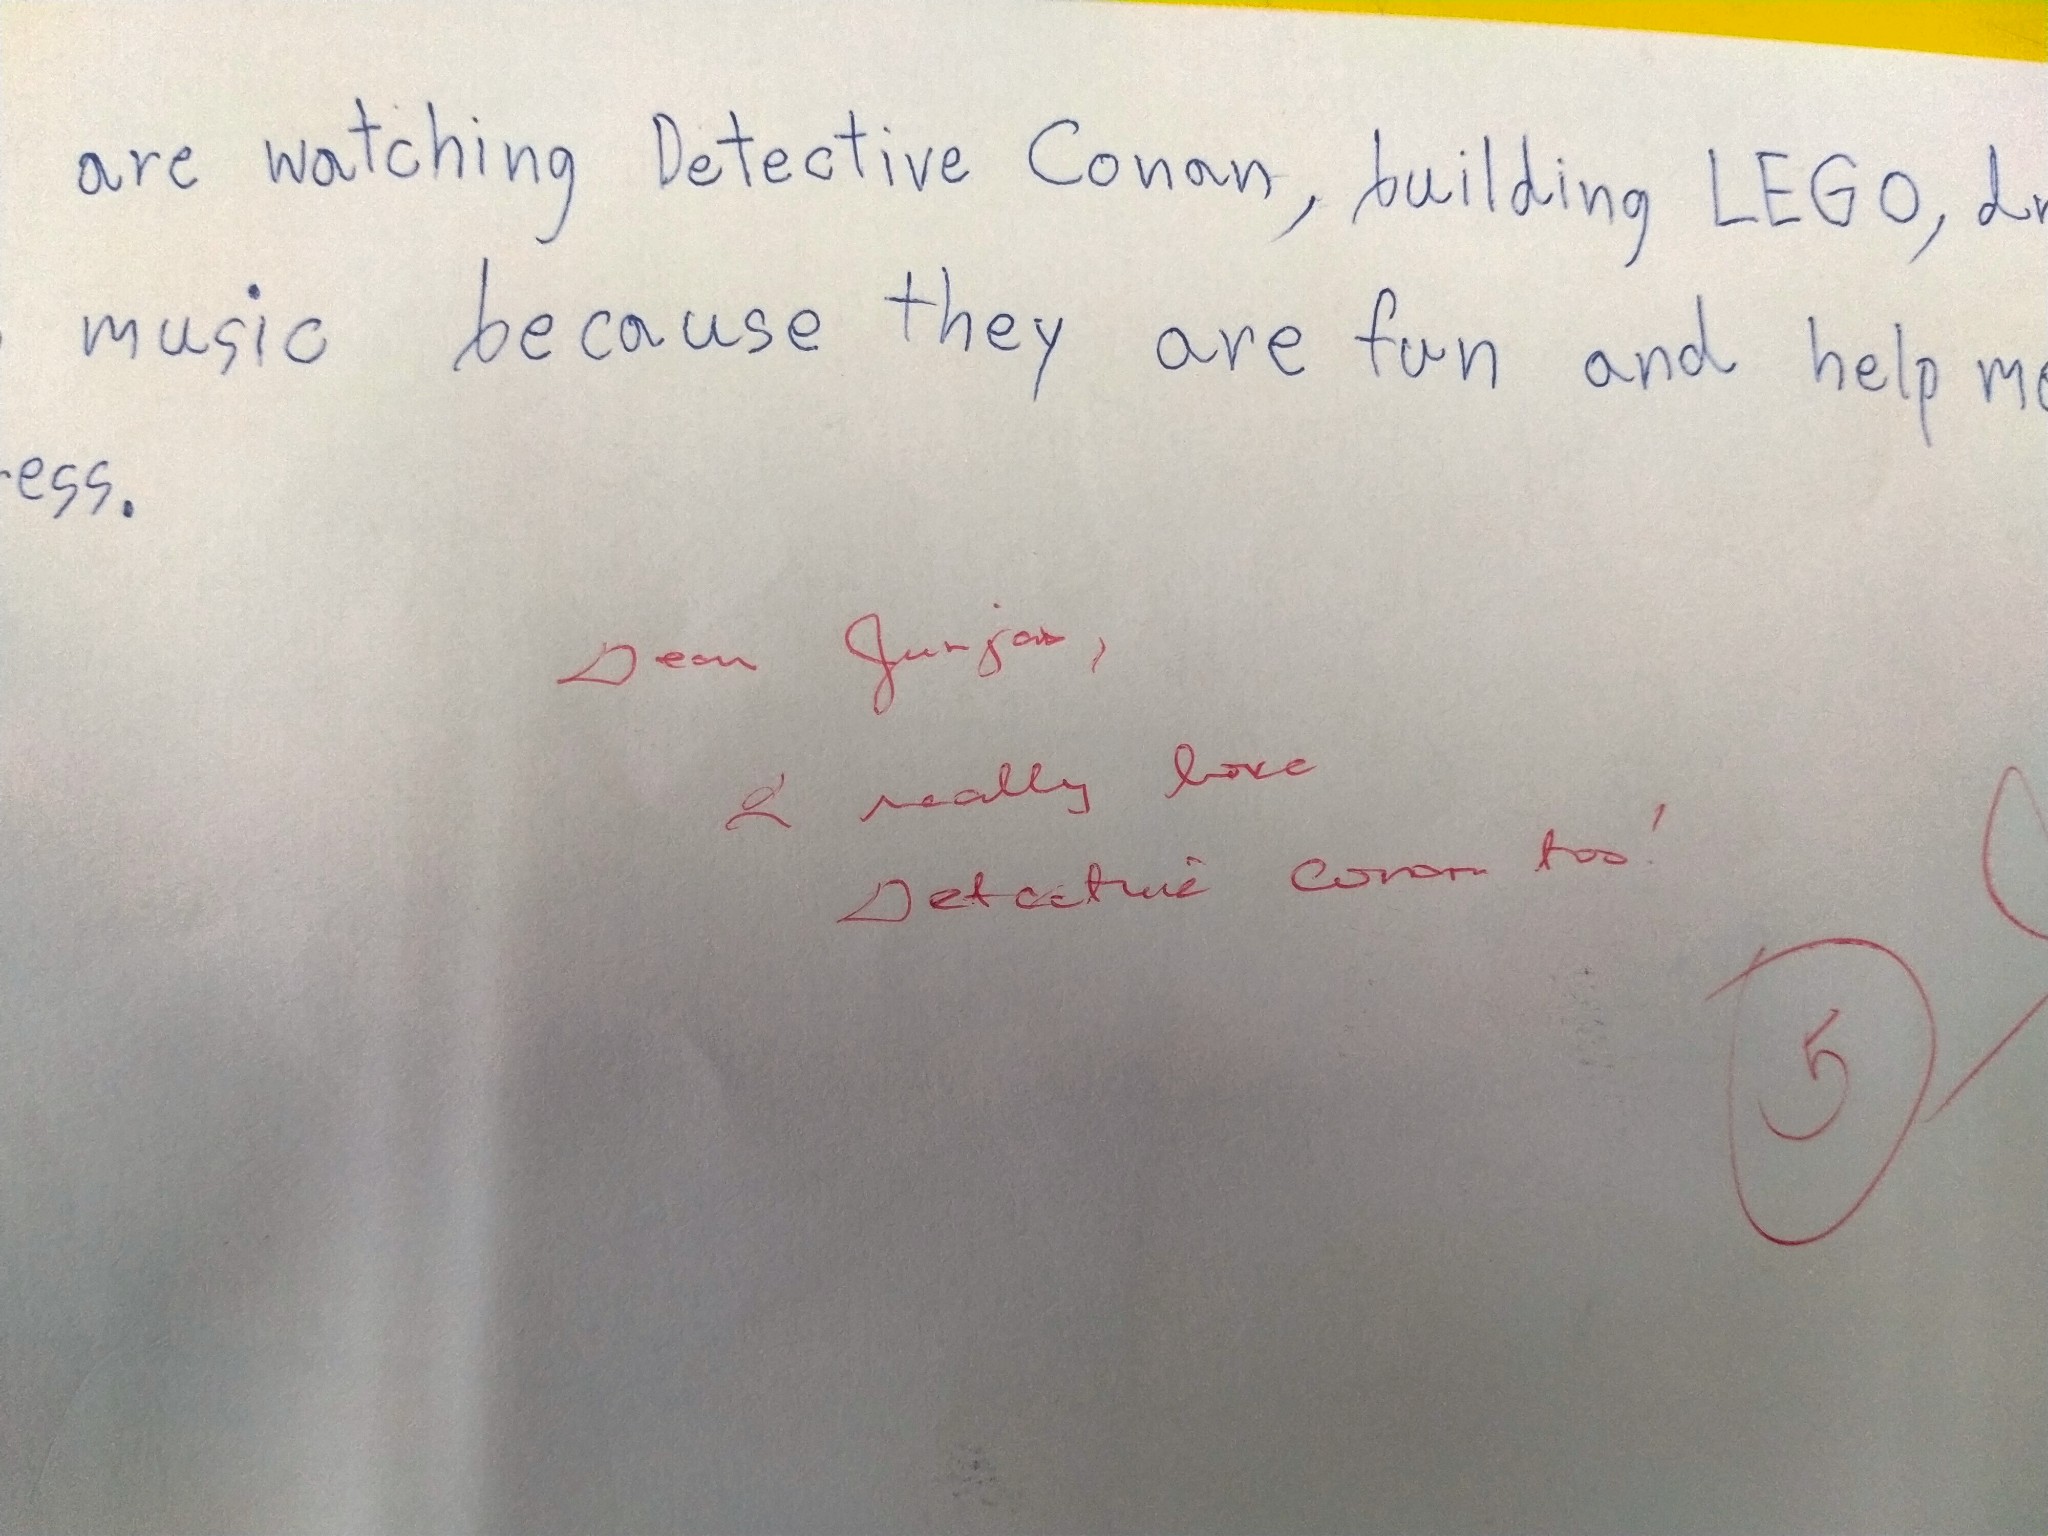 are watching Detective Conan, building LEGO, dr
music because they are fun and help me
ess.
Dear Junjao,
I really love
Detective Conan too!
5